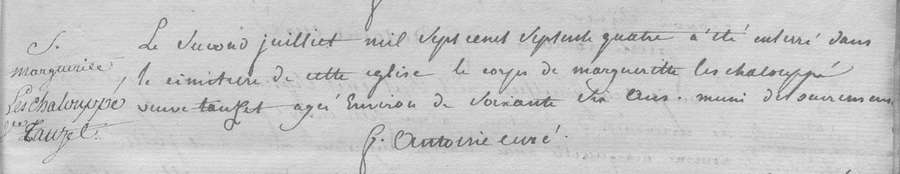 S.
marguerite
Leschalouppé
veuve
tauzet.
Le Second juilliet mil Sept cent Septente quatre a été enterré dans
le cimitiere de cette eglise le corps de marguerite leschalouppé
veuve tauzet ageé Environ de Soixante Six Ans. muni des sacremens
f. Antoine curé.